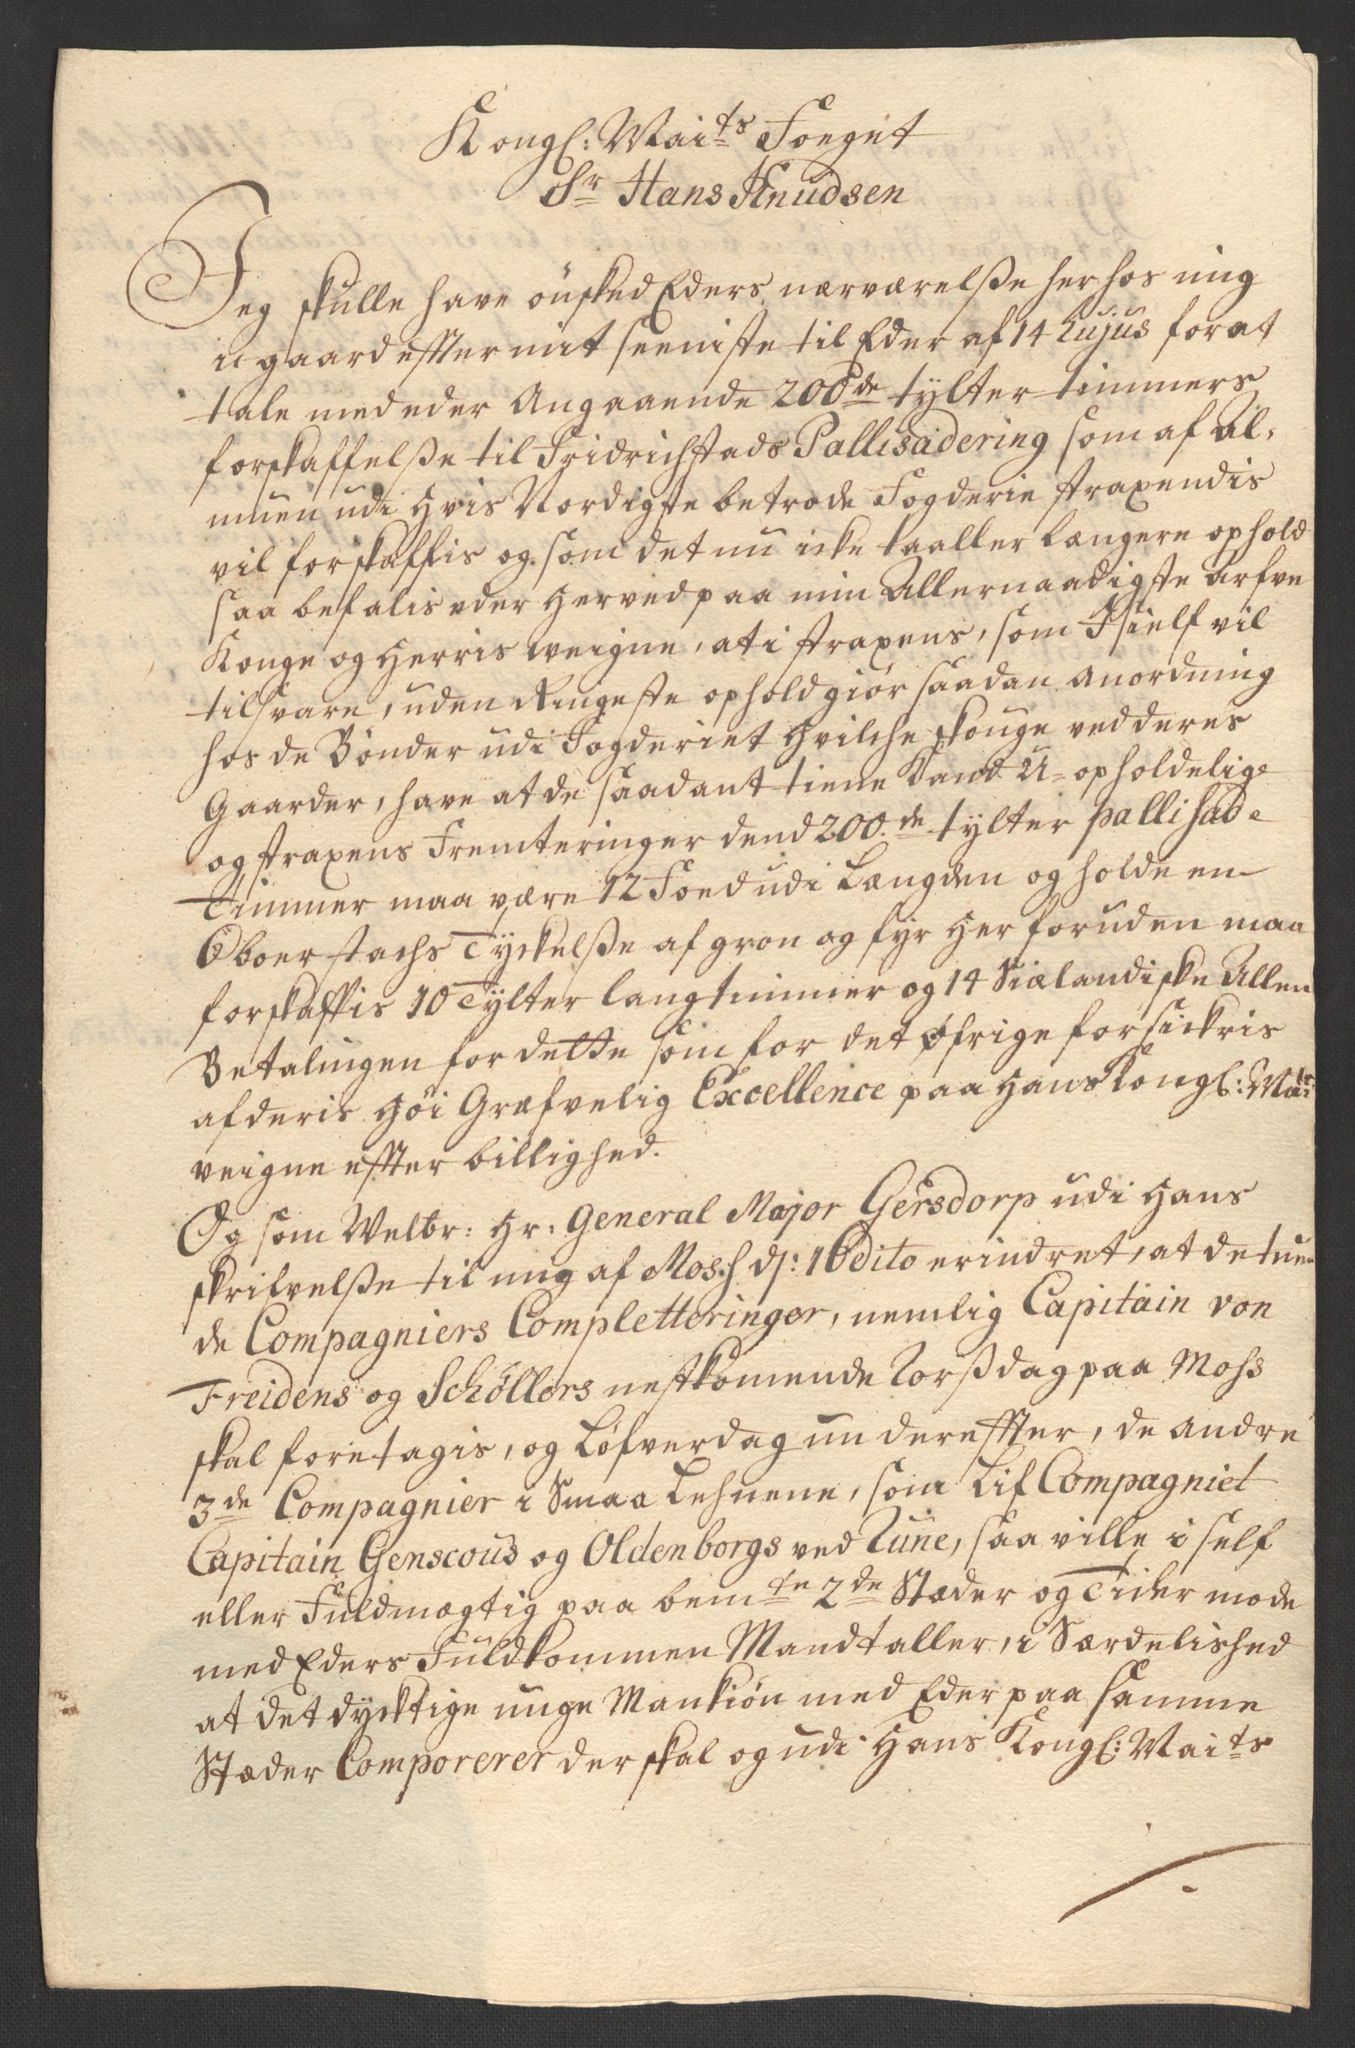 Kongl: Maits Foeget
Sr Hans Knudsen
Jeg skulle have önsked Eders nærværelsse her hos mig
i gaard effter mit seeniste til Eder af 14 hujus for at
tale med eder Angaaende 200de tylter timmers
forskaffelsse til Fridrichstads Pallisadering som af Al-
muen udi Hvis Nordigste betrode Fogderie straxendis
vil forskaffis og som det nu icke taaller længere ophold
saa befalis eder Herved paa min Allernaadigste Arfve
Konge og Herris veigne, at i straxens, som I sielf vil
tilsvare, uden Ringeste ophold giör saadan anordning
hos de Bönder udi Fogderiet Hvilche skouge ved deres
Gaarder, have at de saadant tiene Kand U-opholdelige
og straxens Fremteringer dend 200.de tylter pallisade
Timmer maa være 12 Foed udi Længden og holde en
Oboerstachs Tyckelsse af gron og fyr Her foruden maa
forskaffis 10 Tylter langtimmer og 14 Siælandiske Allen
Betalingen for dette som for det øfrige forsickris
af deris Höi Græfvelig Excellence paa Hans Kongl: Mai
veigne effter billighed.
Og som Welbr: Hr: General Major Gersdorp udi Hans
skrifvelsse til mig af Moss d: 10 dito erindret, at de tuen
de Compagniers Completteringer, nemlig Capitain von
Freidens og Schøllers nestkomende Torssdag paa Moss
skal foretagis, og Løfverdagen dereffter, de andre
3de Compagnier i Smaa Lehnene, som Lif Compagniet
Capitain Genscous og Oldenborgs ved Tune, saa ville i self
eller Fuldmægtig paa bemte 2de Stæder og Tider møde
med Eders Fuldkommen Mandtaller, i Særdelished
at det dycktige unge Mankiön med Eder paa samme
Stæder Comporerer der skal og udi Hans Kongl: Maits